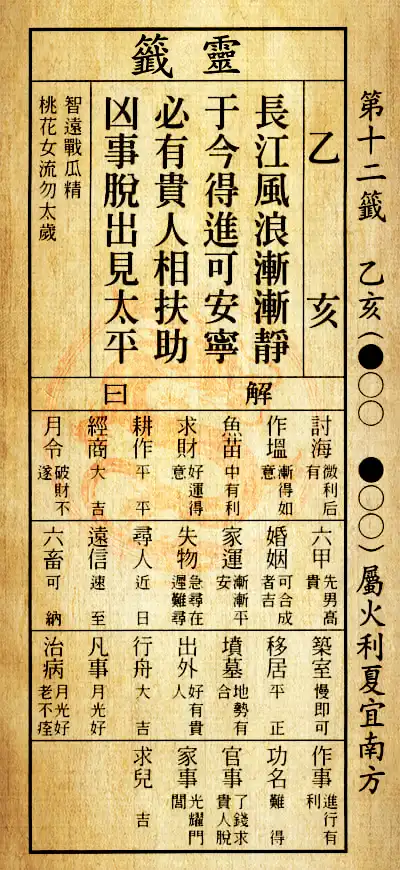 第十二籤 乙亥(●○○ ●○○)屬火利夏宜南方
靈籤
乙亥
長江風浪漸漸靜
于今得進可安寧
必有貴人相扶助
凶事脫出見太平
智遠戰瓜精
桃花女流勿太歲
解曰
討海 微利后有
作塭 漸得如意
魚苗 中有利
求財 好運得意
耕作 平平
經商 大吉
月令 破財不遂
六甲 先男高貴
婚姻 可合成者吉
家運 漸漸平安
失物 急尋在遲難尋
尋人 近日
遠信 速至
六畜 可納
築室 慢即可
移居 平正
墳墓 地勢有合
出外 好有貴人
行舟 大吉
凡事 月光好
治病 月光好老不痊
作事 進行有利
功名 難得
官事 了錢求貴人脫
家事 光耀門閭
求兒 吉